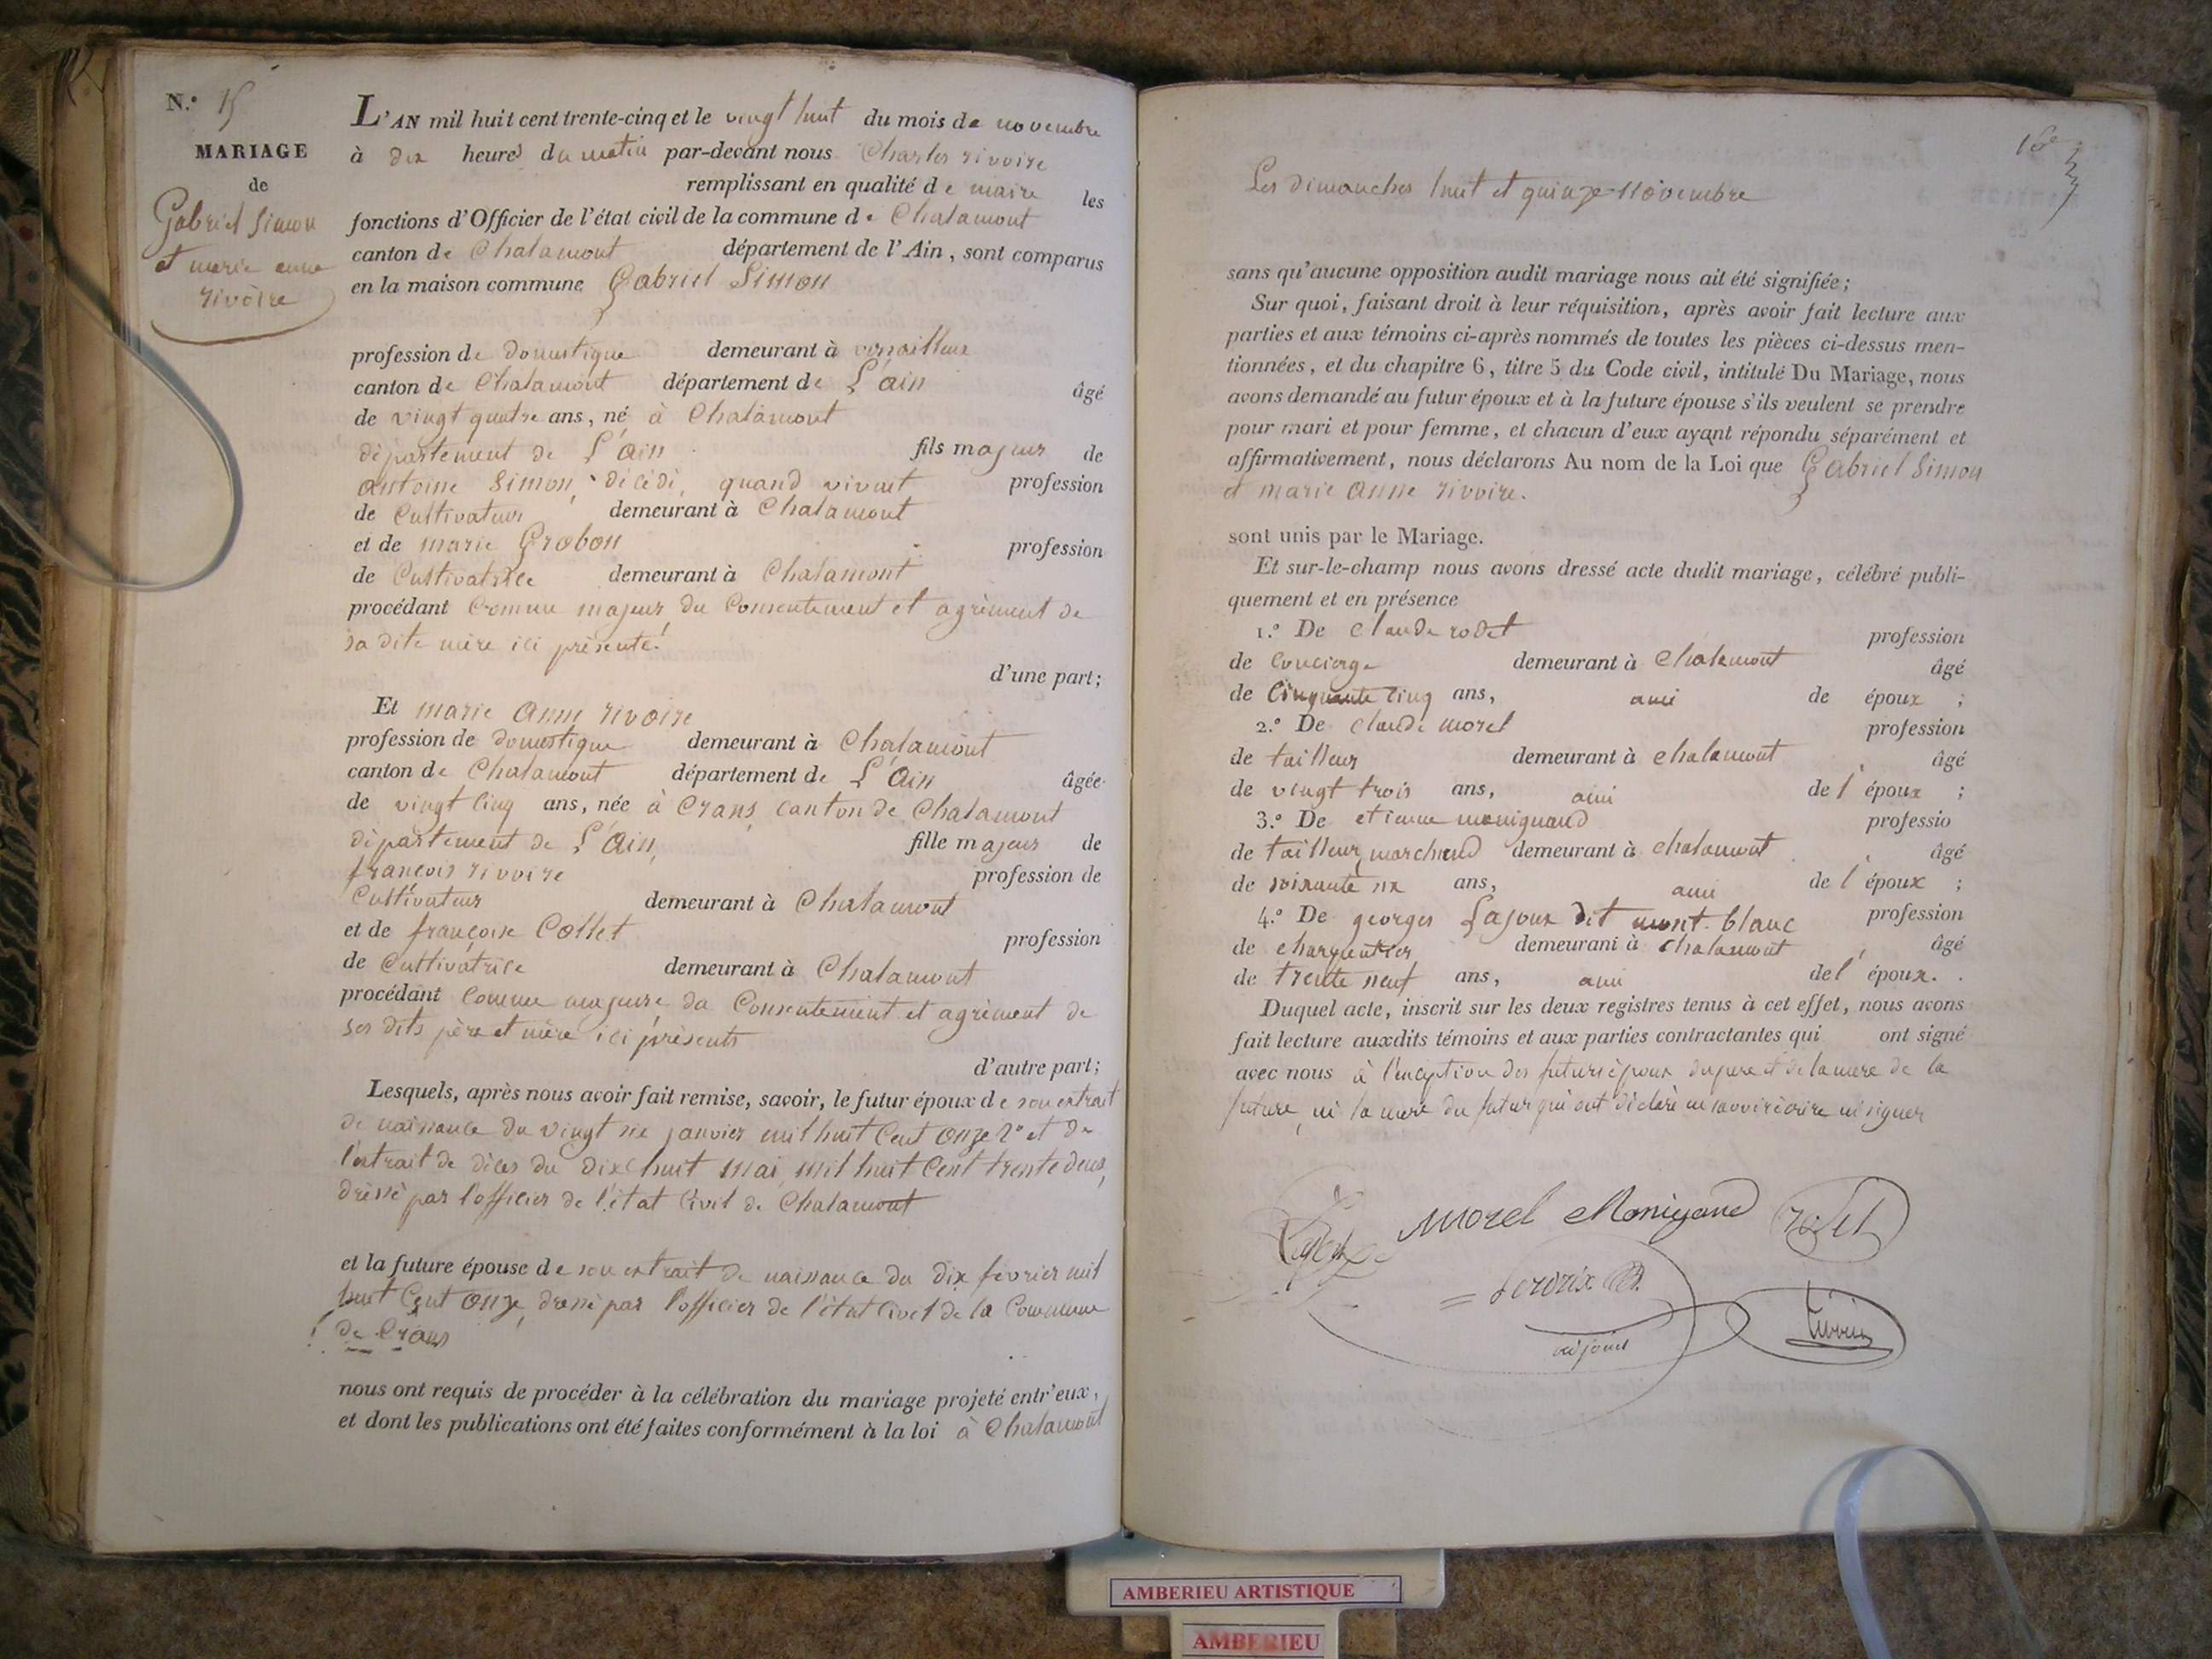 N.º 15
MARIAGE
de
Gabriel Simon
et marie anne
rivoire
L'AN mil huit cent trente-cinq et le vingt huit du mois de novembre
à dix heures du matin par-devant nous Charles rivoire
remplissant en qualité de maire les
fonctions d'Officier de l'état civil de la commune de Chalamont
canton de Chalamont département de l'Ain, sont comparus
en la maison commune Gabriel Simon
profession de domestique demeurant à
canton de Chalamont département de L'ain âgé
de vingt quatre ans, né à Chalamont
département de L'ain fils majeur de
antoine Simon, décédé, quand vivait profession
de Cultivateur demeurant à Chalamont
et de marie Grobon profession
de Cultivatrice demeurant à Chalamont
procédant Comme majeur du Consentement et agrément de
sa dite mère ici présente.
d'une part;
Et marie anne rivoire
profession de domestique demeurant à Chalamont
canton de Chalamont département de L'ain âgée
de vingt cinq ans, née à Crans canton de Chalamont
département de L'ain, fille majeur de
françois rivoire profession de
Cultivateur demeurant à Chalamont
et de françoise Collet profession
de Cultivatrice demeurant à Chalamont
procédant Comme majeure du Consentement et agrément de
ses dits père et mère ici présents
d'autre part;
Lesquels, après nous avoir fait remise, savoir, le futur époux de son extrait
de naissance du vingt six janvier mil huit Cent onze 2º et de
l'extrait de décès du dix huit mai mil huit Cent trente deux,
dressé par l'officier de l'état Civil de Chalamont
et la future épouse de son extrait de naissance du dix février mil
huit Cent onze, dressé par l'officier de l'état Civil de la Commune
de Crans
nous ont requis de procéder à la célébration du mariage projeté entr'eux,
et dont les publications ont été faites conformément à la loi à Chalamont
16e
Les dimanches huit et quinze novembre
sans qu'aucune opposition audit mariage nous ait été signifiée;
Sur quoi, faisant droit à leur réquisition, après avoir fait lecture aux
parties et aux témoins ci-après nommés de toutes les pièces ci-dessus men-
tionnées, et du chapitre 6, titre 5 du Code civil, intitulé Du Mariage, nous
avons demandé au futur époux et à la future épouse s'ils veulent se prendre
pour mari et pour femme, et chacun d'eux ayant répondu séparément et
affirmativement, nous déclarons Au nom de la Loi que Gabriel Simon
et marie anne rivoire.
sont unis par le Mariage.
Et sur-le-champ nous avons dressé acte dudit mariage, célébré publi-
quement et en présence
1.º De claude rodet profession
de concierge demeurant à chalamont âgé
de Cinquante cinq ans, ami de époux ;
2.º De claude morel profession
de tailleur demeurant à chalamont âgé
de vingt trois ans, ami de l' époux ;
3.º De etienne monignand professio
de tailleur marchand demeurant à chalamont âgé
de soixante six ans, ami de l' époux ;
4.º De georges Lajoux dit mont-blanc profession
de charpentier demeurant à chalamont âgé
de trente neuf ans, ami de l' époux.
Duquel acte, inscrit sur les deux registres tenus à cet effet, nous avons
fait lecture auxdits témoins et aux parties contractantes qui ont signé
avec nous à l'exception des futurs époux du père et de la mère de la
future, ni la mère du futur qui ont déclaré ne savoir écrire ni signer
Morel Monignand rodet
adjoint
AMBERIEU ARTISTIQUE
AMBERIEU